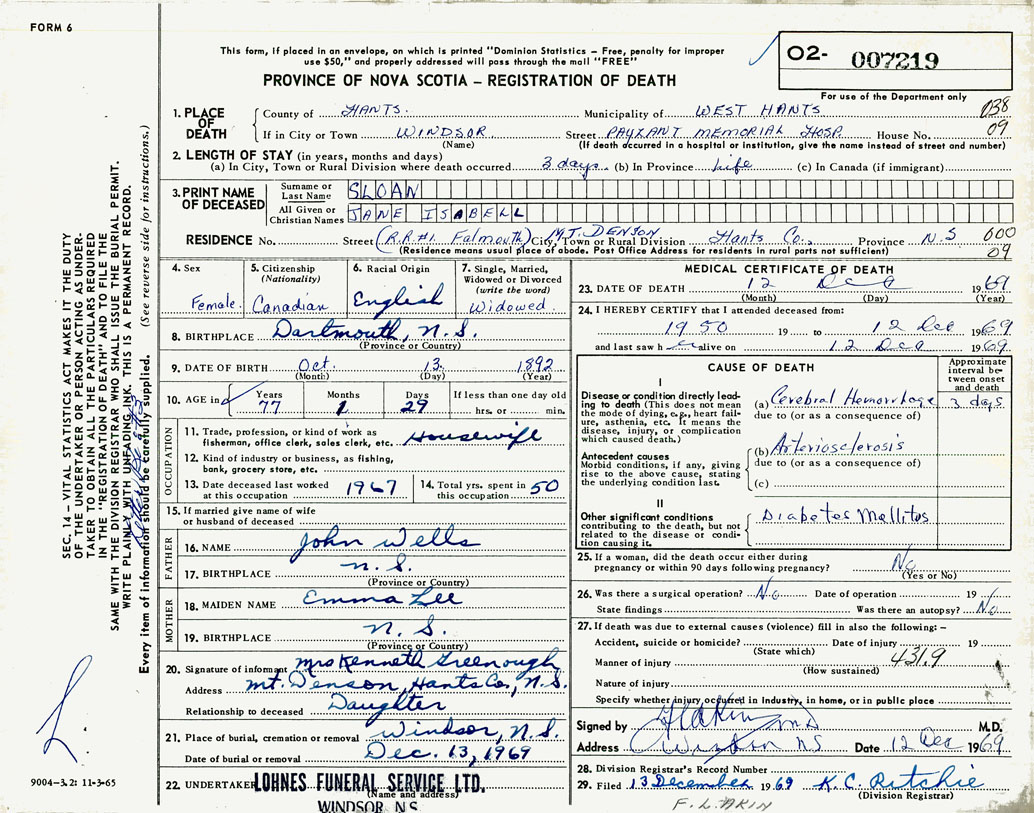 FORM 6
This form, if placed in an envelope, on which is printed "Dominion Statistics – Free, penalty for improper
use $50," and properly addressed will pass through the mail "FREE"
PROVINCE OF NOVA SCOTIA – REGISTRATION OF DEATH
O2- 007219
For use of the Department only
SEC. 14 – VITAL STATISTICS ACT MAKES IT THE DUTY
OF THE UNDERTAKER OR PERSON ACTING AS UNDER-
TAKER TO OBTAIN ALL THE PARTICULARS REQUIRED
IN THE "REGISTRATION OF DEATH" AND TO FILE THE
SAME WITH THE DIVISION REGISTRAR WHO SHALL ISSUE THE BURIAL PERMIT.
WRITE PLAINLY WITH UNFADING INK. THIS IS A PERMANENT RECORD.
Every item of information should be carefully supplied. (See reverse side for instructions.)
1. PLACE OF DEATH
County of HANTS. Municipality of WEST HANTS 038
If in City or Town WINDSOR Street PAYZANT MEMORIAL HOSP. House No. 09
(Name) (If death occurred in a hospital or institution, give the name instead of street and number)
2. LENGTH OF STAY (in years, months and days)
(a) In City, Town or Rural Division where death occurred 3 days (b) In Province Life (c) In Canada (if immigrant)
3. PRINT NAME OF DECEASED
Surname or Last Name SLOAN
All Given or Christian Names JANE ISABELL
RESIDENCE No. Street (R.R.#1. Falmouth) City, Town or Rural Division MT. DENSON Hants Co., Province N.S 600
(Residence means usual place of abode. Post Office Address for residents in rural parts not sufficient) 09
4. Sex Female.
5. Citizenship (Nationality) Canadian
6. Racial Origin English
7. Single, Married, Widowed or Divorced (write the word) Widowed
8. BIRTHPLACE Dartmouth, N.S.
(Province or Country)
9. DATE OF BIRTH Oct. 13 1892
(Month) (Day) (Year)
10. AGE in Years 77 Months 1 Days 29 If less than one day old
hrs. or min.
OCCUPATION
11. Trade, profession, or kind of work as Housewife
fisherman, office clerk, sales clerk, etc.
12. Kind of industry or business, as fishing,
bank, grocery store, etc.
13. Date deceased last worked at this occupation 1967
14. Total yrs. spent in this occupation 50
15. If married give name of wife
or husband of deceased
FATHER
16. NAME John Wells
17. BIRTHPLACE N.S.
(Province or Country)
MOTHER
18. MAIDEN NAME Emma Lee
19. BIRTHPLACE N.S.
(Province or Country)
20. Signature of informant Mrs Kenneth Greenough
Address Mt. Denson, Hants Co., N.S.
Relationship to deceased Daughter
21. Place of burial, cremation or removal Windsor, N.S.
Date of burial or removal Dec. 13, 1969
22. UNDERTAKER LOHNES FUNERAL SERVICE LTD.
(Name and address)
WINDSOR, N.S.
9004-3.2: 11-3-65
MEDICAL CERTIFICATE OF DEATH
23. DATE OF DEATH 12 Dec 1969
(Month) (Day) (Year)
24. I HEREBY CERTIFY that I attended deceased from:
1950 19 to 12 Dec 1969
and last saw h er alive on 12 Dec 1969
CAUSE OF DEATH
Approximate interval between onset and death
I
Disease or condition directly leading to death (This does not mean the mode of dying, e.g., heart failure, asthenia, etc. It means the disease, injury, or complication which caused death.)
(a) Cerebral Hemorrhage 3 days
due to (or as a consequence of)
Antecedent causes
Morbid conditions, if any, giving rise to the above cause, stating the underlying condition last.
(b) Arteriosclerosis
due to (or as a consequence of)
(c)
II
Other significant conditions contributing to the death, but not related to the disease or condition causing it.
Diabetes Mellitos
25. If a woman, did the death occur either during
pregnancy or within 90 days following pregnancy? No
(Yes or No)
26. Was there a surgical operation? No Date of operation 19
State findings Was there an autopsy? No
27. If death was due to external causes (violence) fill in also the following:–
Accident, suicide or homicide? Date of injury 19
(State which)
Manner of injury 431.9
(How sustained)
Nature of injury
Specify whether injury occurred in Industry, in home, or in public place
Signed by FLAkin MD M.D.
Address Windsor NS Date 12 Dec 1969
28. Division Registrar's Record Number
29. Filed 13 December 1969 K. C. Ritchie
(Division Registrar)
F. L. AKIN